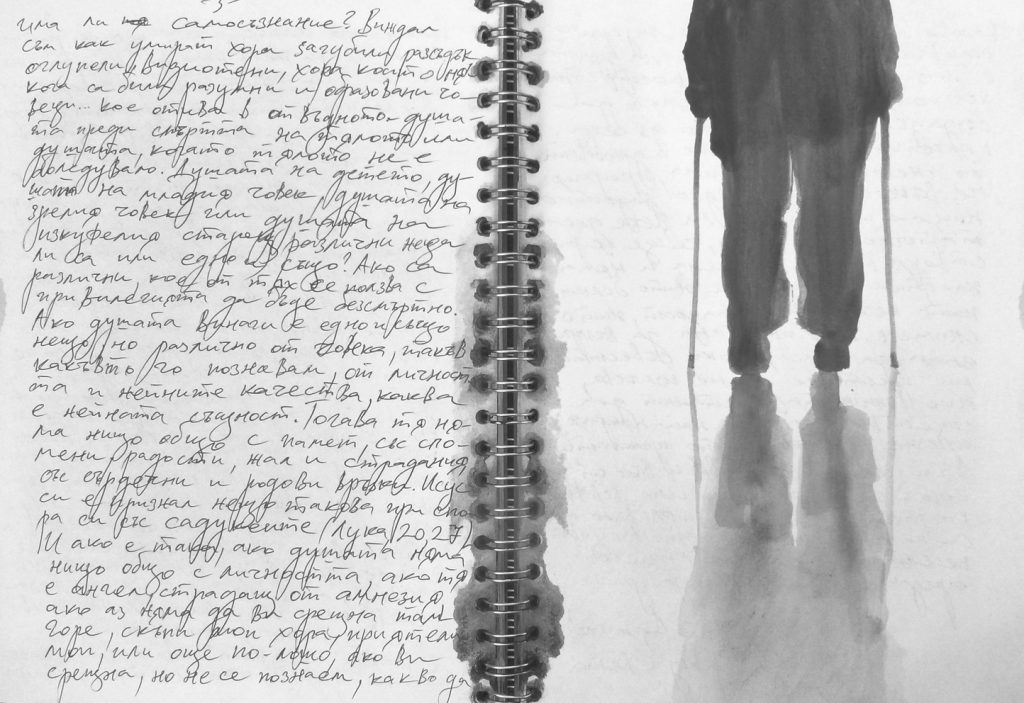 -5-
има ли самосъзнание? Виждал
съм как умират хора загубили разсъдък
оглупели, хора които ня-
кога са били разумни и образовани чо-
веци... кое отива в отвъдното - душа-
та преди смъртта на тялото или
душата, която тялото не е
доледувало. Душата на детето, ду-
шата на младия човек, душата на
зрелия човек или душата на
изкуфелия старец различни неща
ли са или едно и също? Ако са
различни, кое от тях се ползва с
привилегията да бъде безсмъртно.
Ако душата винаги е едно и също
нещо, но различно от човека, такъв
какъвто го познавам, от личност
та и нейните качества, каква
е нейната същност. Тогава тя ня-
ма нищо общо с памет, със спо-
мени, радости, жал и страдания
със сърдечни и родови връзки. Исус
си е признал нещо такова при спо-
ра си със садукеите (Лука 20,27)
И ако е така, ако душата няма
нищо общо с личността, ако тя
е ангел страдащ от амнезия
ако аз няма да ви срещна там
горе, скъпи мои хора, приятели
мои, или още по-лошо, ако ви
срещна, но не се познаем, какво да